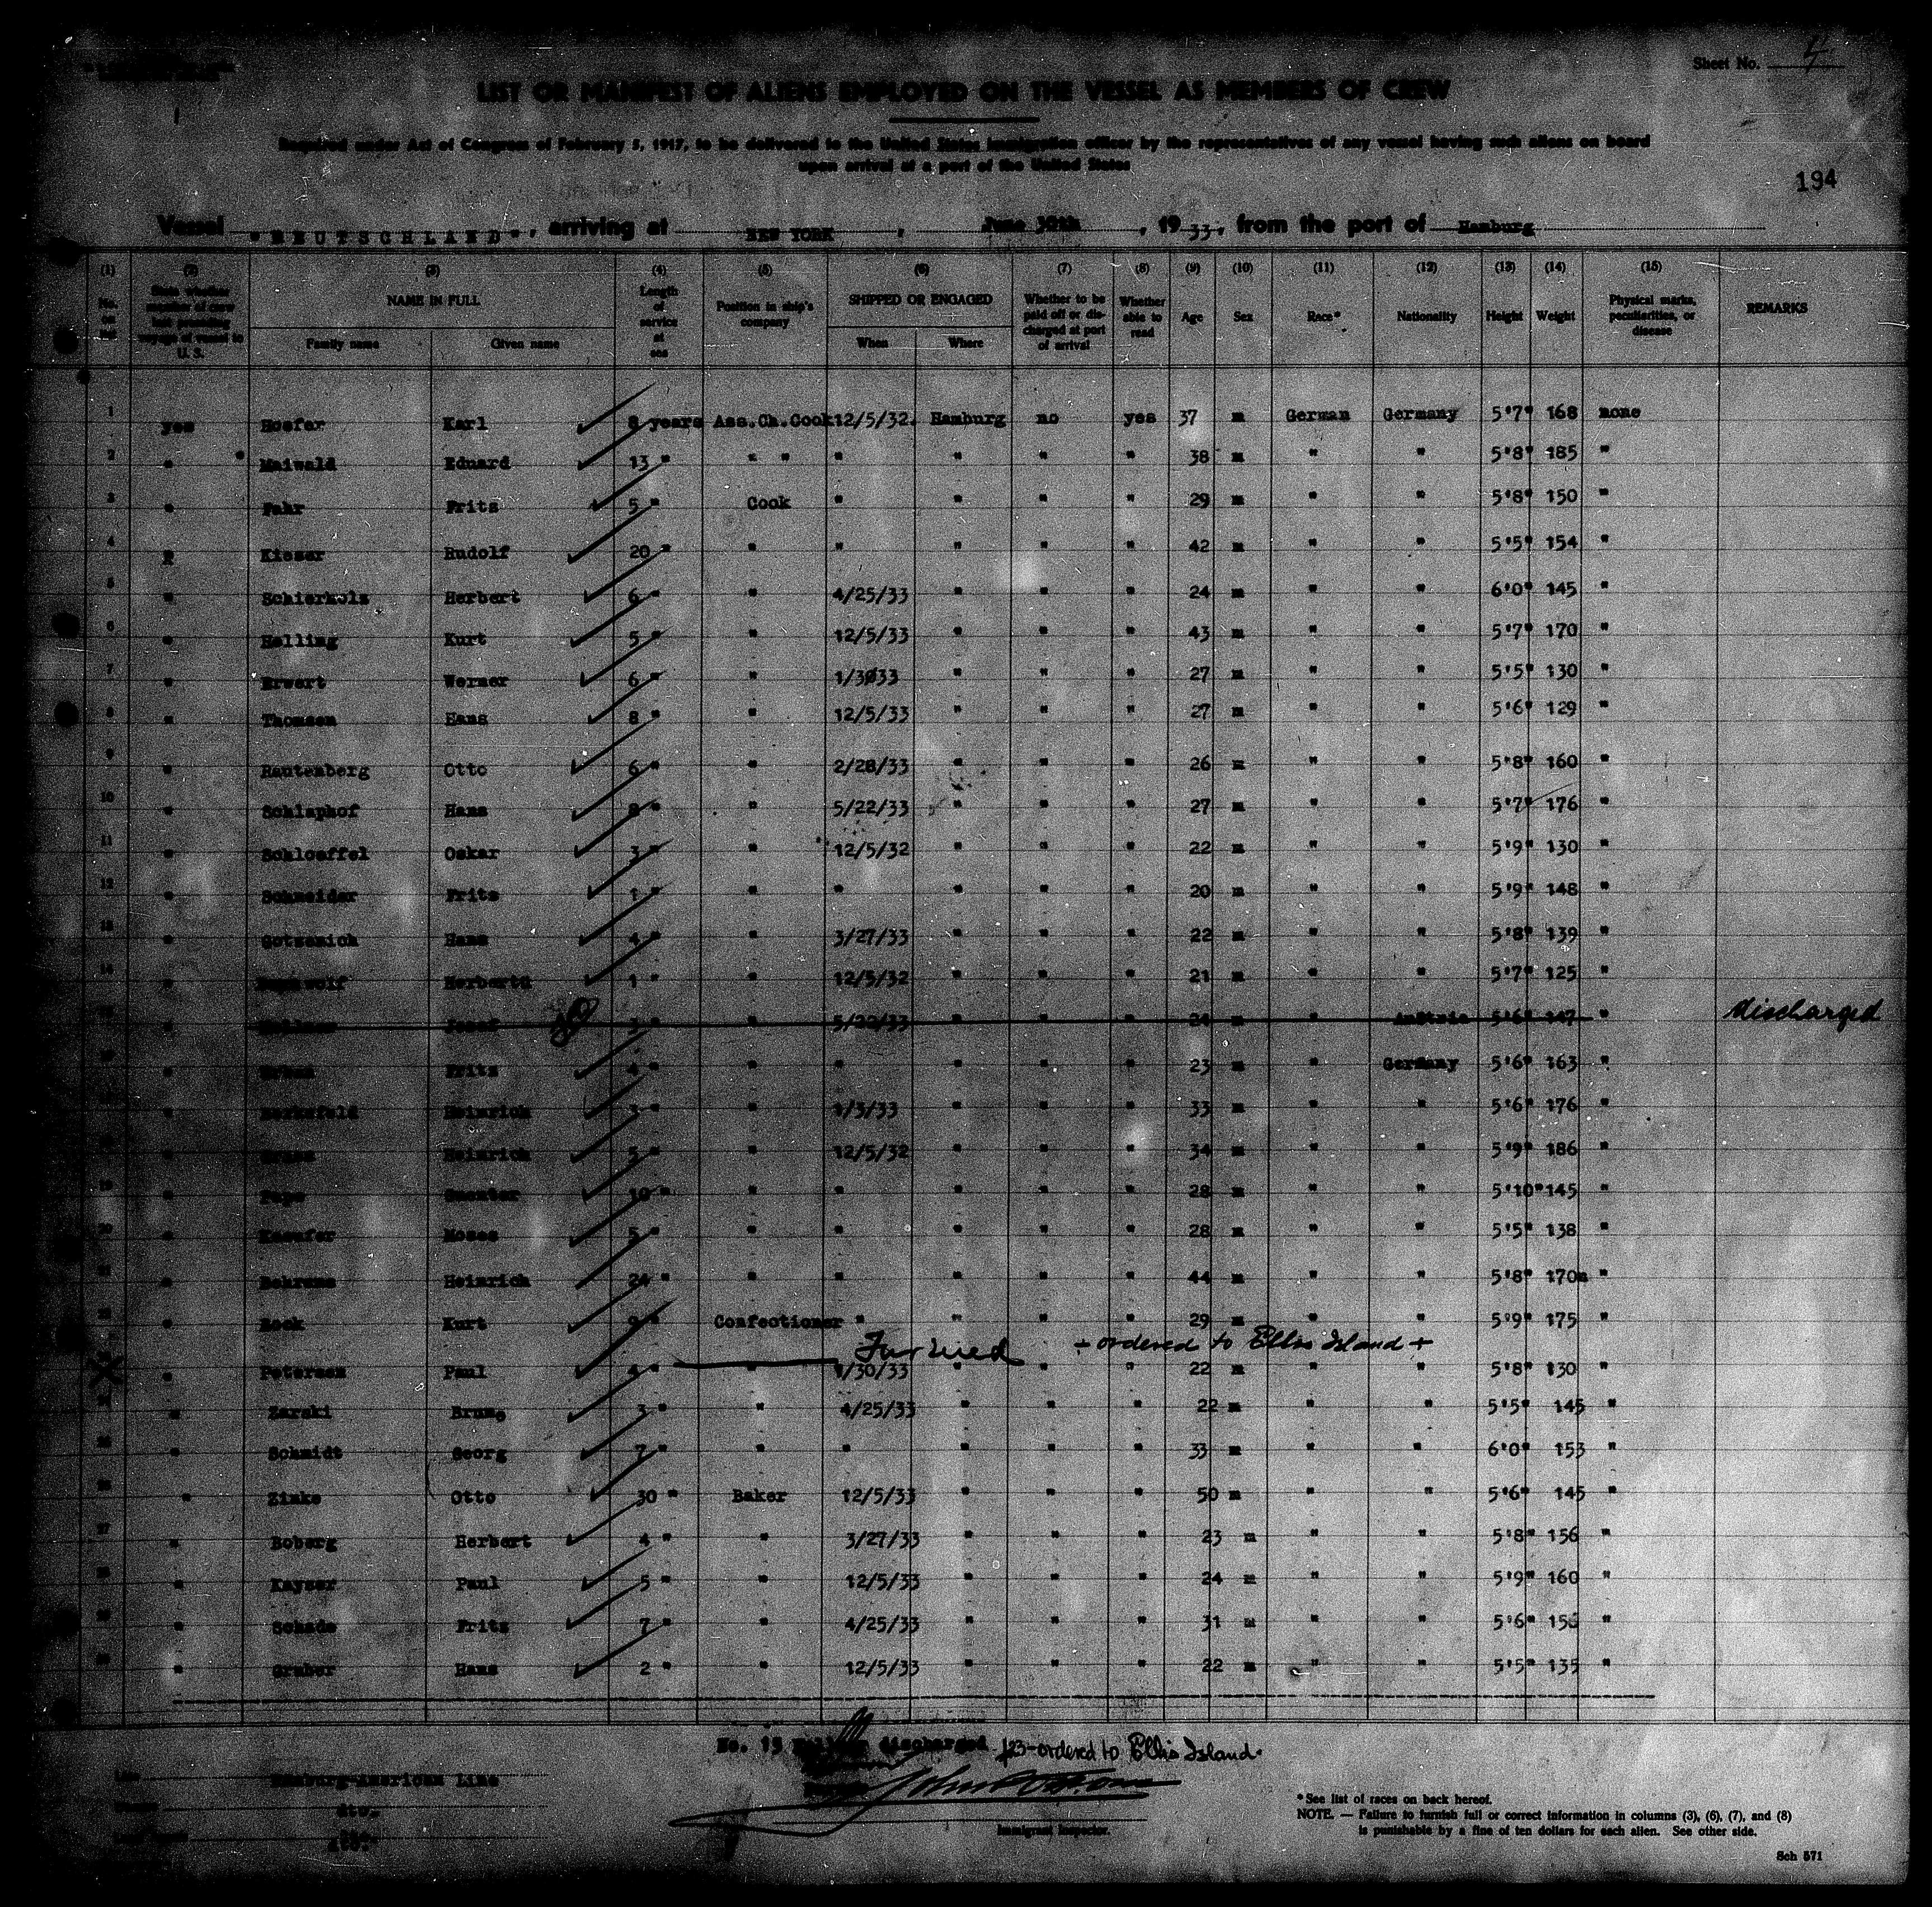 Sheet No. 4
LIST OR MANIFEST OF ALIENS EMPLOYED ON THE VESSEL AS MEMBERS OF CREW
Required under Act of Congress of February 5, 1917, to be delivered to the United States immigration officer by the representatives of any vessel having such aliens on board
upon arrival at a port of the United States
194
Vessel "DEUTSCHLAND", arriving at NEW YORK, June 30th, 1933, from the port of Hamburg
(1) (2) (3) (4) (5) (6) (7) (8) (9) (10) (11) (12) (13) (14) (15)
No. on list State whether member of crew last preceding voyage of vessel to U. S. NAME IN FULL Family name Given name Length of service at sea Position in ship's company SHIPPED OR ENGAGED When Where Whether to be paid off or discharged at port of arrival Whether able to read Age Sex Race* Nationality Height Weight Physical marks, peculiarities, or disease REMARKS
1 yes Hoefer Karl 8 years Ass.Ch.Cook 12/5/32. Hamburg no yes 37 m German Germany 5'7" 168 none
2 " Maiwald Eduard 13 " " " " " " " 38 m " " 5'8" 185 "
3 " Fahr Fritz 5 " Cook " " " " 29 m " " 5'8" 150 "
4 " Kieser Rudolf 20 " " " " " " 42 m " " 5'5" 154 "
5 " Schierholz Herbert 6 " " 4/25/33 " " " 24 m " " 6'0" 145 "
6 " Helling Kurt 5 " " 12/5/33 " " " 43 m " " 5'7" 170 "
7 " Erwert Werner 6 " " 1/3033 " " " 27 m " " 5'5" 130 "
8 " Thomsen Hans 8 " " 12/5/33 " " " 27 m " " 5'6" 129 "
9 " Rautenberg Otto 6 " " 2/28/33 " " " 26 m " " 5'8" 160 "
10 " Schlaphof Hans 8 " " 5/22/33 " " " 27 m " " 5'7" 176 "
11 " Schloeffel Oskar 3 " " 12/5/32 " " " 22 m " " 5'9" 130 "
12 " Schneider Fritz 1 " " " " " " 20 m " " 5'9" 148 "
13 " Gotzenich Hans 4 " " 3/27/33 " " " 22 m " " 5'8" 139 "
14 " Herbertd 1 " " 12/5/32 " " " 21 m " " 5'7" 125 "
" Josef " " 5/22/33 " " " 24 m " Austria 5'6" 147 " discharged
" Fritz 4 " " " " " " 23 m " Germany 5'6" 163 "
" Heinrich 3 " " 1/3/33 " " " 33 m " " 5'6" 176 "
" Heinrich 5 " " 12/5/32 " " " 34 m " " 5'9" 186 "
19 " Pape Guenter 10 " " " " " " 28 m " " 5'10" 145 "
20 " Kaeufer Moses 5 " " " " " " 28 m " " 5'5" 138 "
" Behrens Heinrich 24 " " " " " " 44 m " " 5'8" 170 "
" Kurt 9 " Confectioner " " " " 29 m " " 5'9" 175 "
- ordered to Ellis Island +
" Petersen Paul 4 " " 1/30/33 " " " 22 m " " 5'8" 130 "
" Zarski Bruno 3 " " 4/25/33 " " " 22 m " " 5'5" 145 "
" Schmidt Georg 7 " " " " " " 33 m " " 6'0" 153 "
" Zinke Otto 30 " Baker 12/5/33 " " " 50 m " " 5'6" 145 "
27 " Boberg Herbert 4 " " 3/27/33 " " " 23 m " " 5'8" 156 "
" Kayser Paul 5 " " 12/5/33 " " " 24 m " " 5'9" 160 "
" Schade Fritz 7 " " 4/25/33 " " " 31 m " " 5'6" "
" Gruber Hans 2 " " 12/5/33 " " " 22 m " " 5'5" 135 "
No. 15 discharged #23-ordered to Ellis Island.
Hamburg-American Line
dto.
dto.
Immigrant Inspector.
* See list of races on back hereof.
NOTE. — Failure to furnish full or correct information in columns (3), (6), (7), and (8)
is punishable by a fine of ten dollars for each alien. See other side.
Sch 571